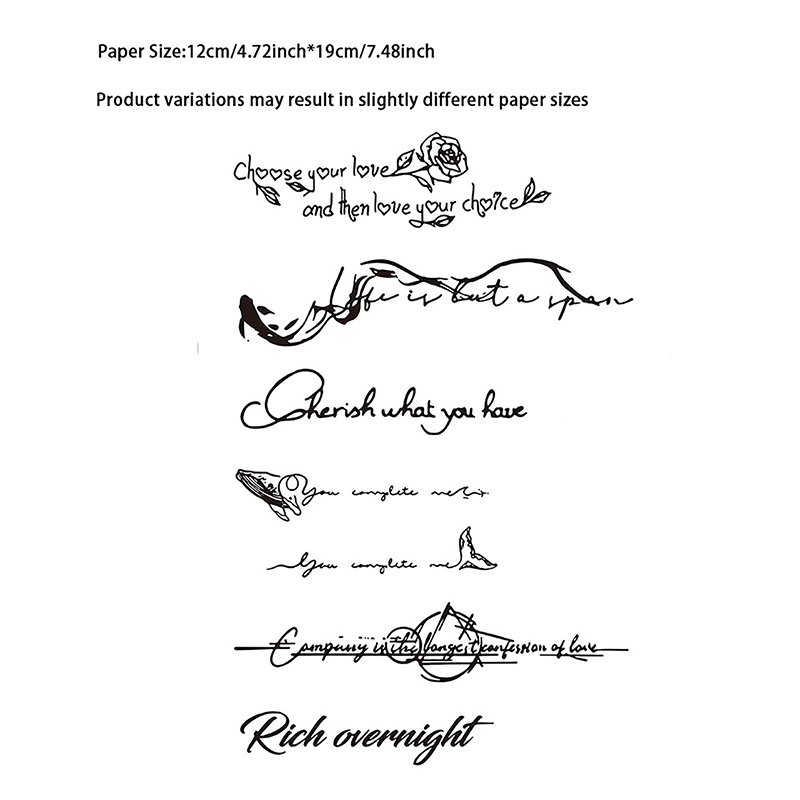 Paper Size:12cm/4.72inch*19cm/7.48inch
Product variations may result in slightly different paper sizes
Choose your love
and then love your choice
Life is but a span
Cherish what you have
You complete me
You complete me
Company is the longest confession of love
Rich overnight